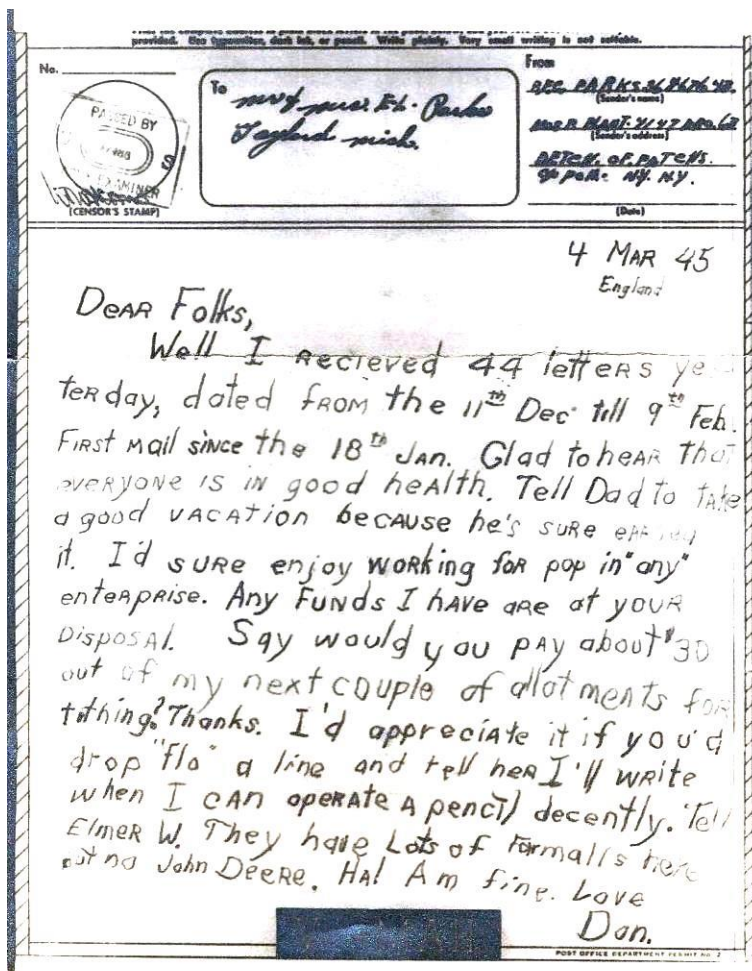 provided. Use typewriter, dark ink, or pencil. Write plainly. Very small writing is not suitable.
No.
PASSED BY
EXAMINER
(CENSOR'S STAMP)
To
Mr & Mrs. Ed. Parks
Gaylord mich.
From
PFC. PARKS
(Sender's name)
PLANT. 4147
(Sender's address)
DETCH. OF PATENS.
NY. NY.
(Date)
4 MAR 45
England
DEAR Folks,
Well I RECIEVED 44 letters
TERday, dated FROM the 11th Dec till 9th Feb.
FIRST MAIL SINCE the 18th JAN. Glad to hEAR That
everyONE IS IN good hEALTH. Tell Dad to TAKE
a good VACATION because he's SURE
it. I'd SURE enjoy WORKING foR pop in "any"
enteRPRISE. Any FUNDS I hAVE ARE AT yOUR
DISPOSAL. Say would you PAY about $30
out of my next couple of allotments foR
tithing? Thanks. I'd appreciate it if you'd
drop "Flo" a line and tell heR I'll WRITE
when I CAN OPERATE A pencil decently. Tell
Elmer W. They have Lots of FORMALLS heRe
but no John DEERE. HA! Am fine. Love
Don.
POST OFFICE DEPARTMENT PERMIT NO. 2